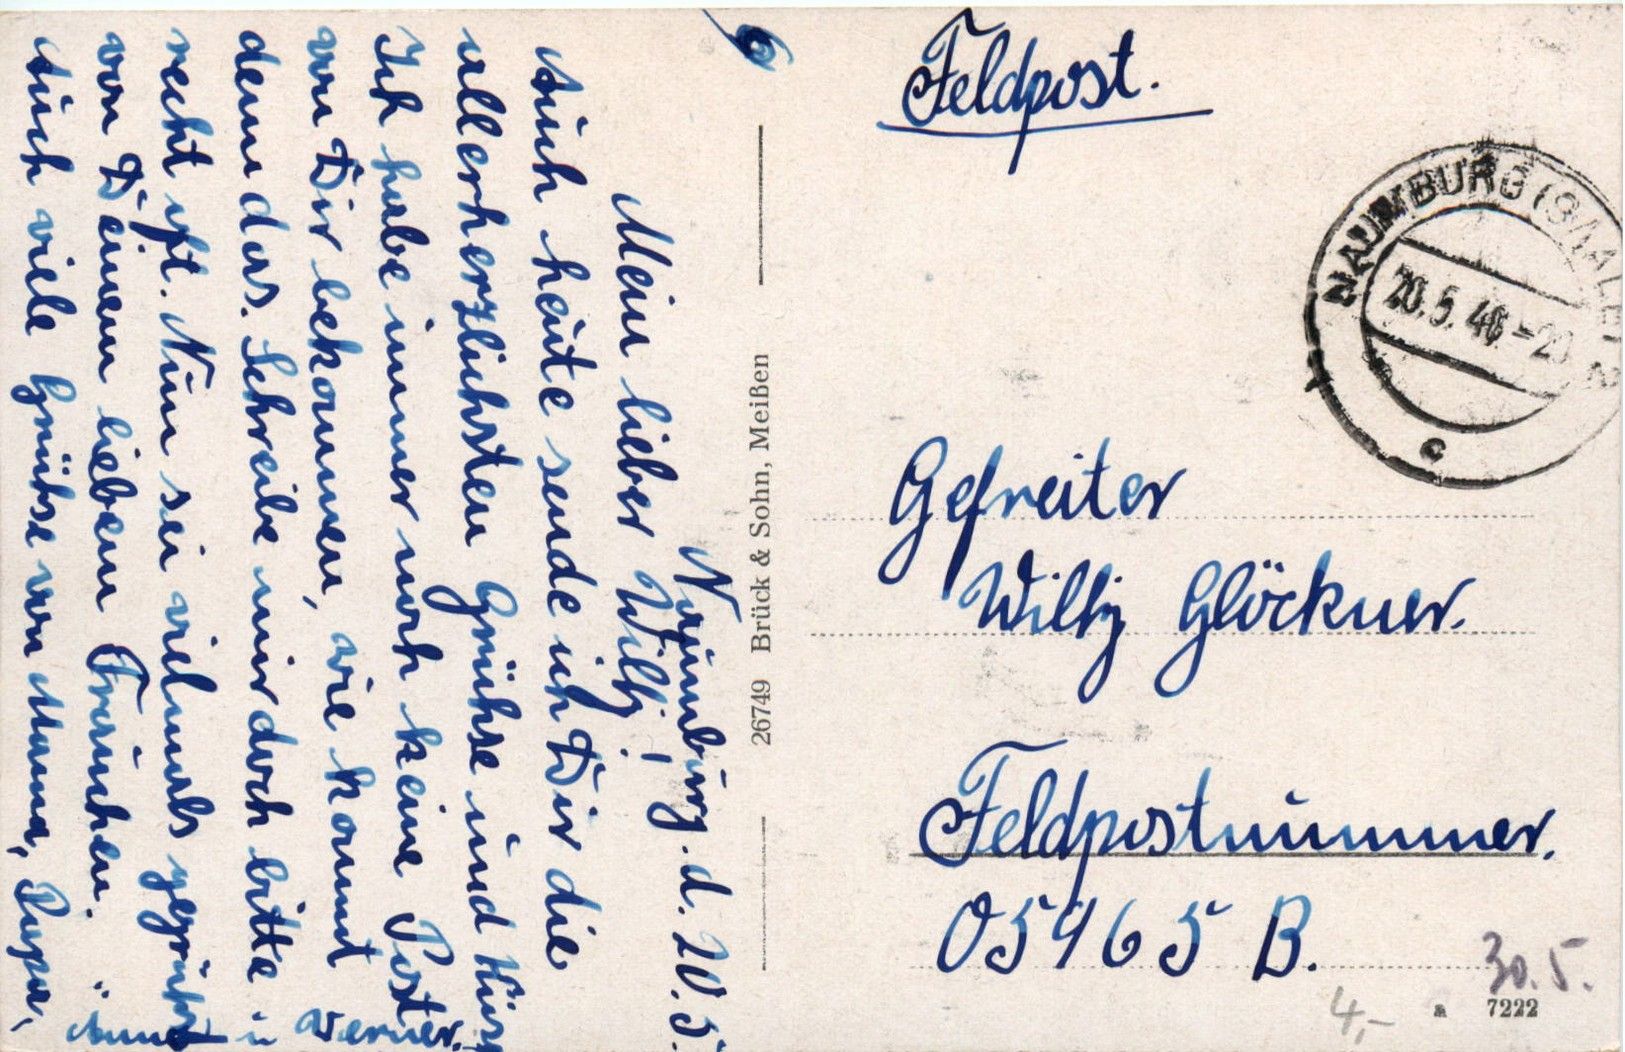 Naumburg. d. 20.5.
Mein lieber Willy!
Auch heute sende ich Dir die
allerherzlichsten Grühse und Küsse
Ich habe immer noch keine Post
von Dir bekommen, wie kommt
denn das. Schreibe mir doch bitte
recht oft. Nun sei vielmals gegrüßt
von Deinem lieben Frauchen.
Auch viele Grühse von Mama, Papa,
u Werner.
26749 Brück & Sohn, Meißen
Feldpost.
NAUMBURG (SAALE) 2
20.5.40-20
c
Gefreiter
Willy Glöckner.
Feldpostnummer.
05965 B.
30.5.
4,-
a 7222